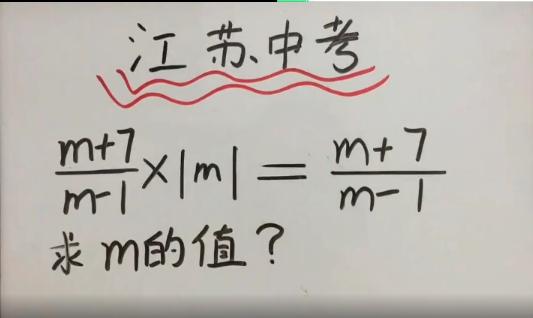 江苏、中考
m+7/m-1 × |m| = m+7/m-1
求m的值?